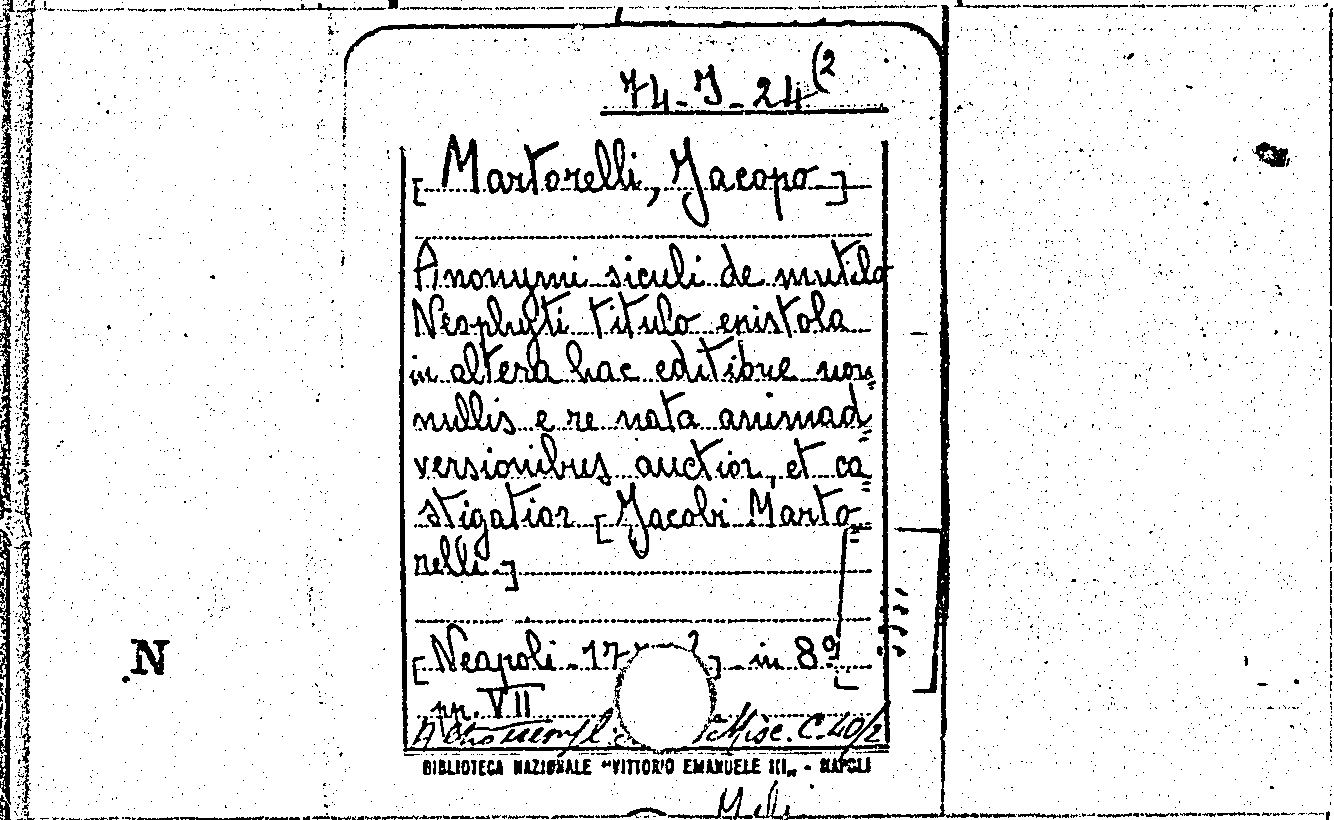 74-J-24(2
[Martorelli, Jacopo]
Anonymi siculi de mutilo
Neophyti titulo epistola
in altera hac editione non=
nullis e re nata animad=
versionibus auctior, et ca=
stigatior [Jacobi Marto=
relli]
[Neapoli - 17 ?] - in 8º
pp. VII
Misc. C. 40/2
BIBLIOTECA NAZIONALE "VITTORIO EMANUELE III" - NAPOLI
N